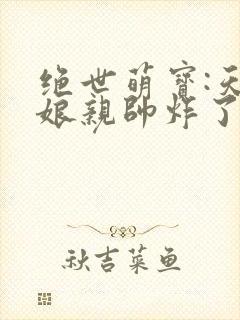 绝世萌宝:天
娘亲帅炸了
秋吉菜鱼